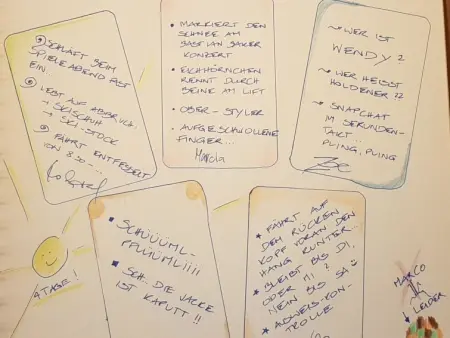 SCHLÄFT BEIM
SPIELEABEND FAST
EIN
LEBT AUF ABBRUCH
→ SKISCHUH
→ SKI-STOCK
FÄHRT ENTFESSELT
VON 8:30 -...
MARKIERT DEN
SCHNEE AM
BASTIAN BAKER
KONZERT
EICHHÖRNCHEN
RENNT DURCH
BEINE AM LIFT
OBER-STYLER
AUFGESCHWOLLENE
FINGER...
Marcla
WER IST
WENDY?
WER HEISST
HOLDENER ??
SNAPCHAT
IM SEKUNDEN-
TAKT..
PLING, PLING
SCHÜÜÜML-
PFLÜÜMLIIII
SCH.. DIE JACKE
IST KAPUTT !!
FÄHRT AUF
DEM RÜCKEN
KOPF VORAN DEN
HANG RUNTER...
BLEIBT BIS DI,
ODER MI ?
NEIN BIS SA
AUSWEIS-KON-
TROLLE
4 TAGE!
MARCO
↓ LEIDER